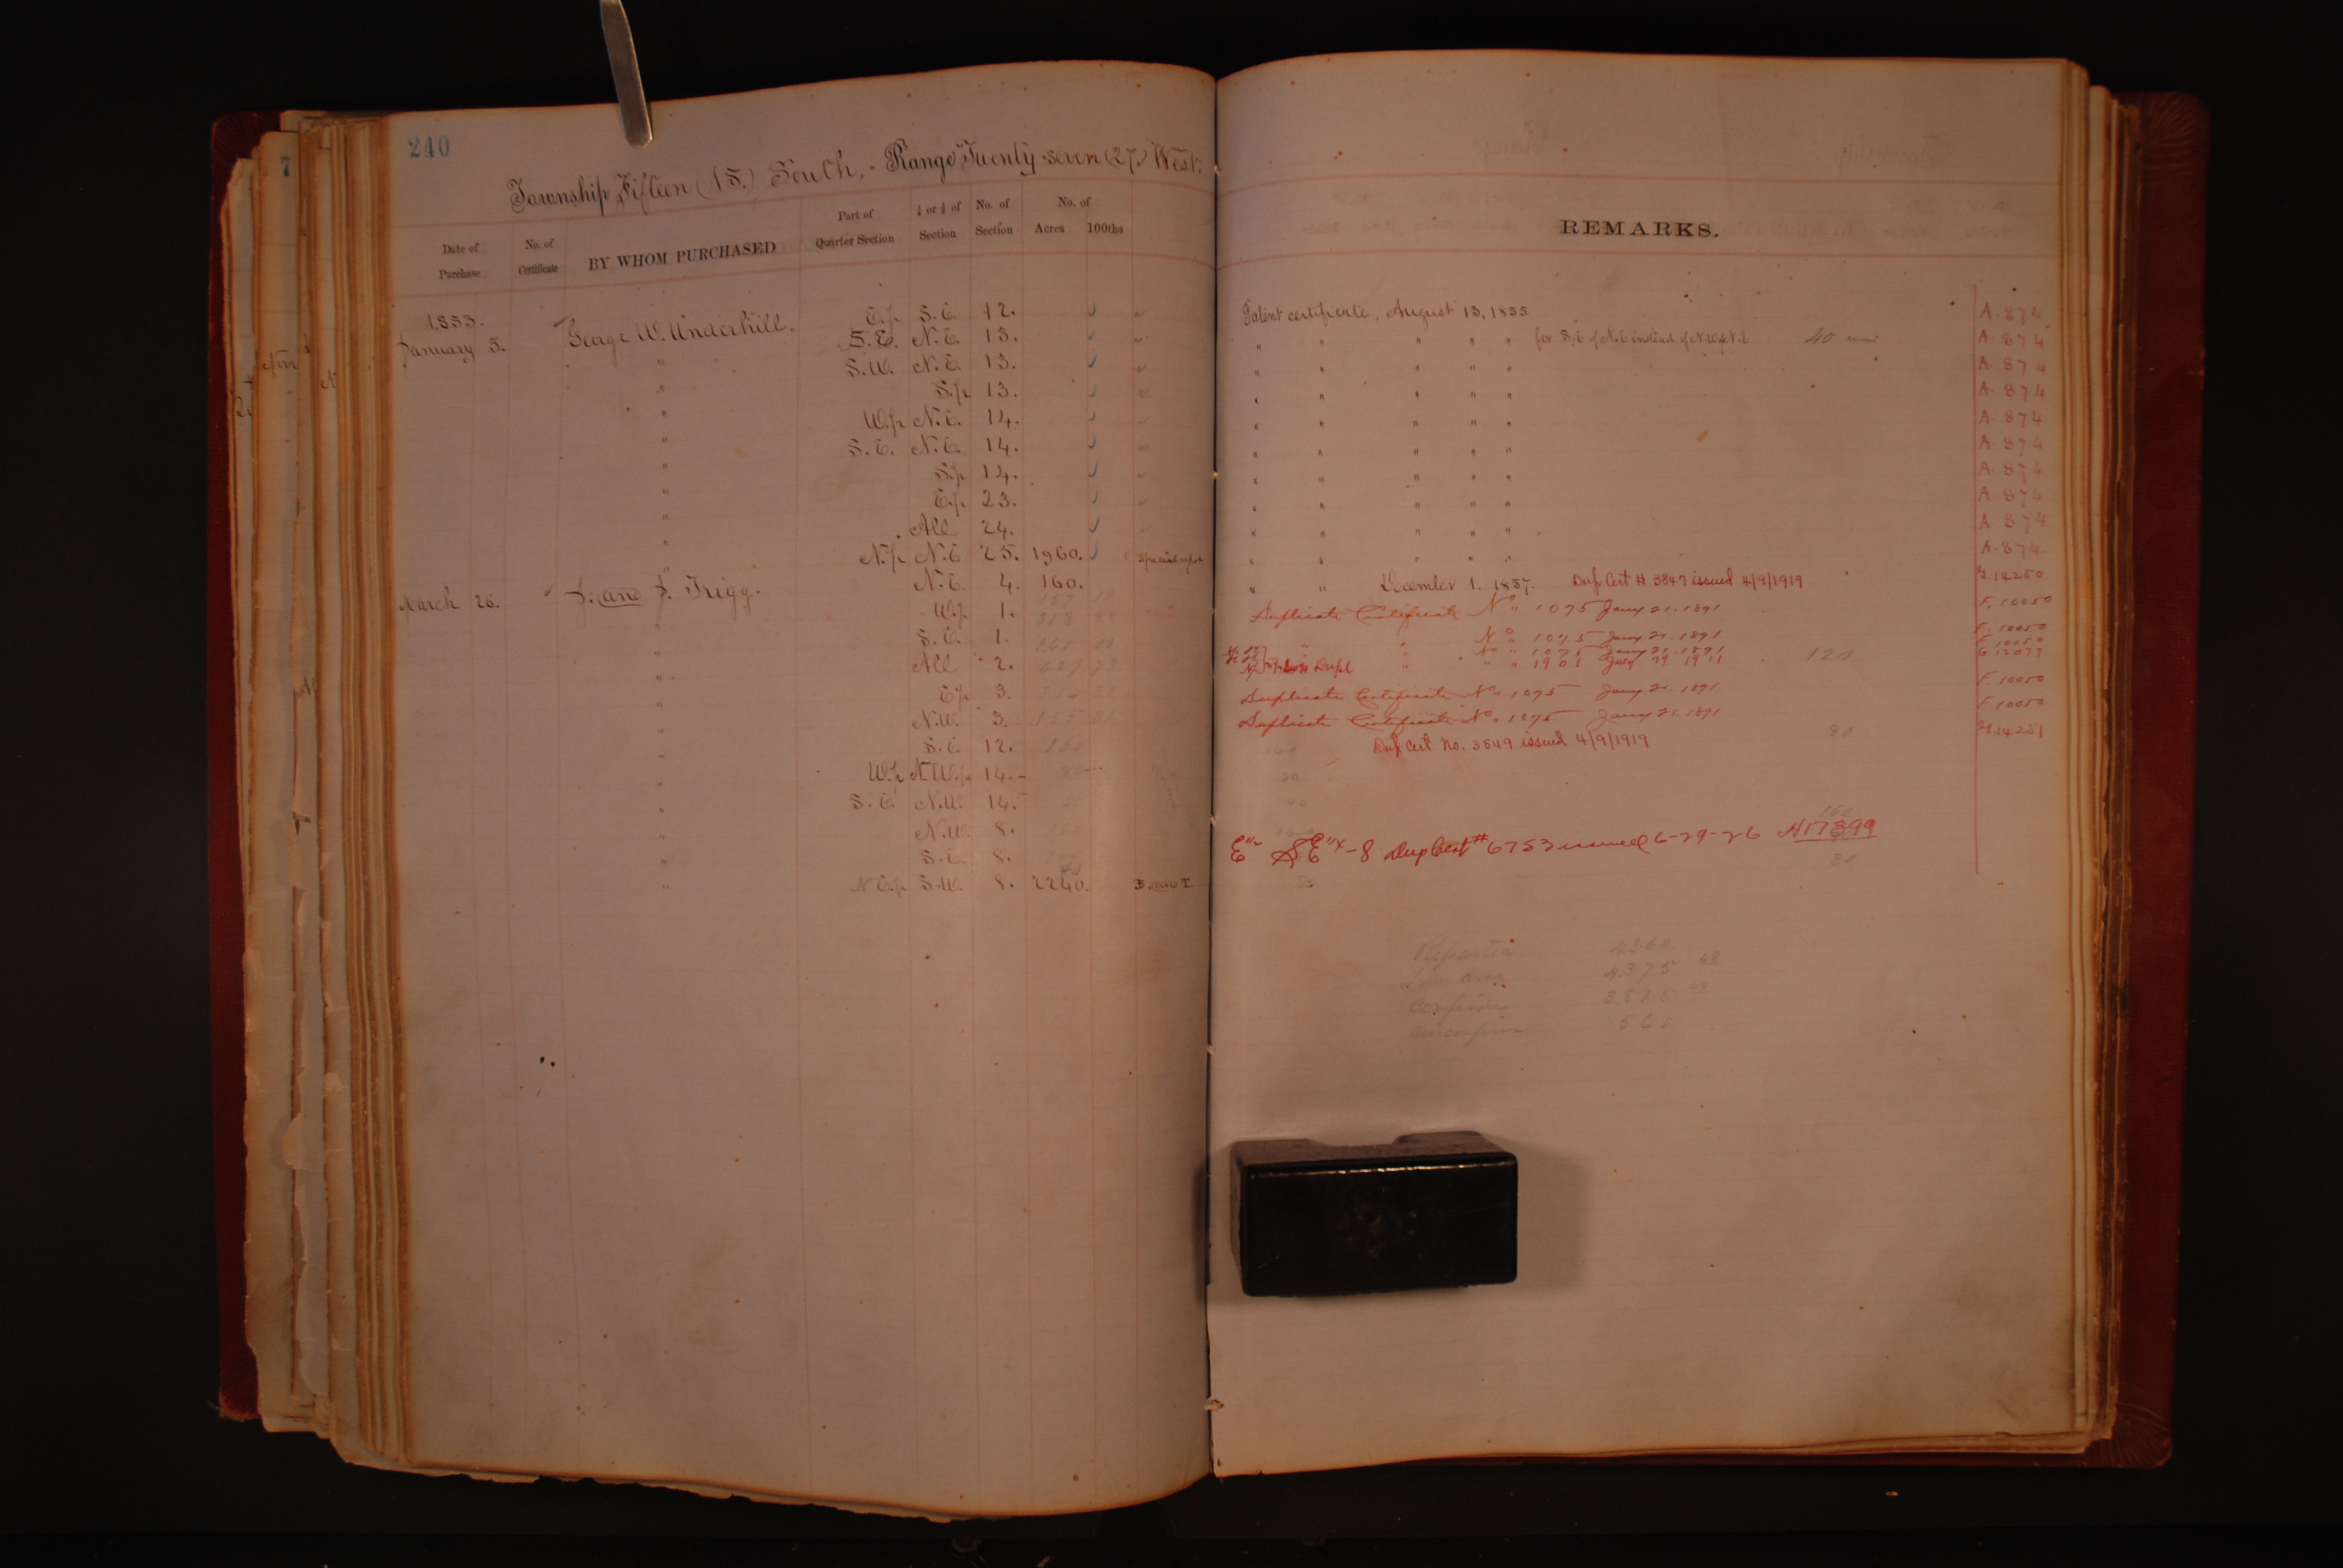 240
Township Fifteen (15.) South, - Range Twenty-seven (27.) West.
Date of Purchase | No. of Certificate | BY WHOM PURCHASED | Part of Quarter Section | ¼ or ½ of Section | No. of Section | No. of Acres | 100ths
REMARKS.
1853.
January 5. George W. Underhill. E.½ S.E. 12. Patent certificate, August 13, 1855 A. 874
" S.E. N.E. 13. " " " " " for S.E. of N.E. instead of N.W. of N.E. 40 A. 874
" S.W. N.E. 13. " " " " " A. 874
" S.½ 13. " " " " " A. 874
" W.½ N.E. 14. " " " " " A. 874
" S.E. N.E. 14. " " " " " A. 874
" S.½ 14. " " " " " A. 874
" E.½ 23. " " " " " A. 874
" All 24. " " " " " A. 874
" N.½ N.E. 25. 1960. " " " " " A. 874.
March 26. J. and J. Trigg. N.E. 4. 160. " " December 1. 1857. Dup. Cert # 3847 issued 4/9/1919 14250
" W.½ 1. Duplicate Certificate No. 1075 Jany 21. 1891 F. 10050
" S.E. 1. " " No. 1075 Jany 21. 1891 F. 10050
" All 2. " " No. 1075 Jany 21. 1891 F. 10050
Dupl " " 1901 July 29 1911 120 G 12077
" E.½ 3. Duplicate Certificate No. 1075 Jany 21. 1891 F. 10050
" N.W. 3. Duplicate Certificate No. 1075 Jany 21. 1891 F. 10050
" S.E. 12. 160 Dup Cert No. 3849 issued 4/9/1919 80 14251
" W.½ N.W. 14. 80
" S.E. N.W. 14.
" N.W. 8. 160
" S.E. 8. E½ SE¼-8 Dup Cert # 6753 issued 6-29-26 H17399
" N.E.½ S.W. 8. 2240. B. and T. 80
4360.
4375 48
3815 48
560